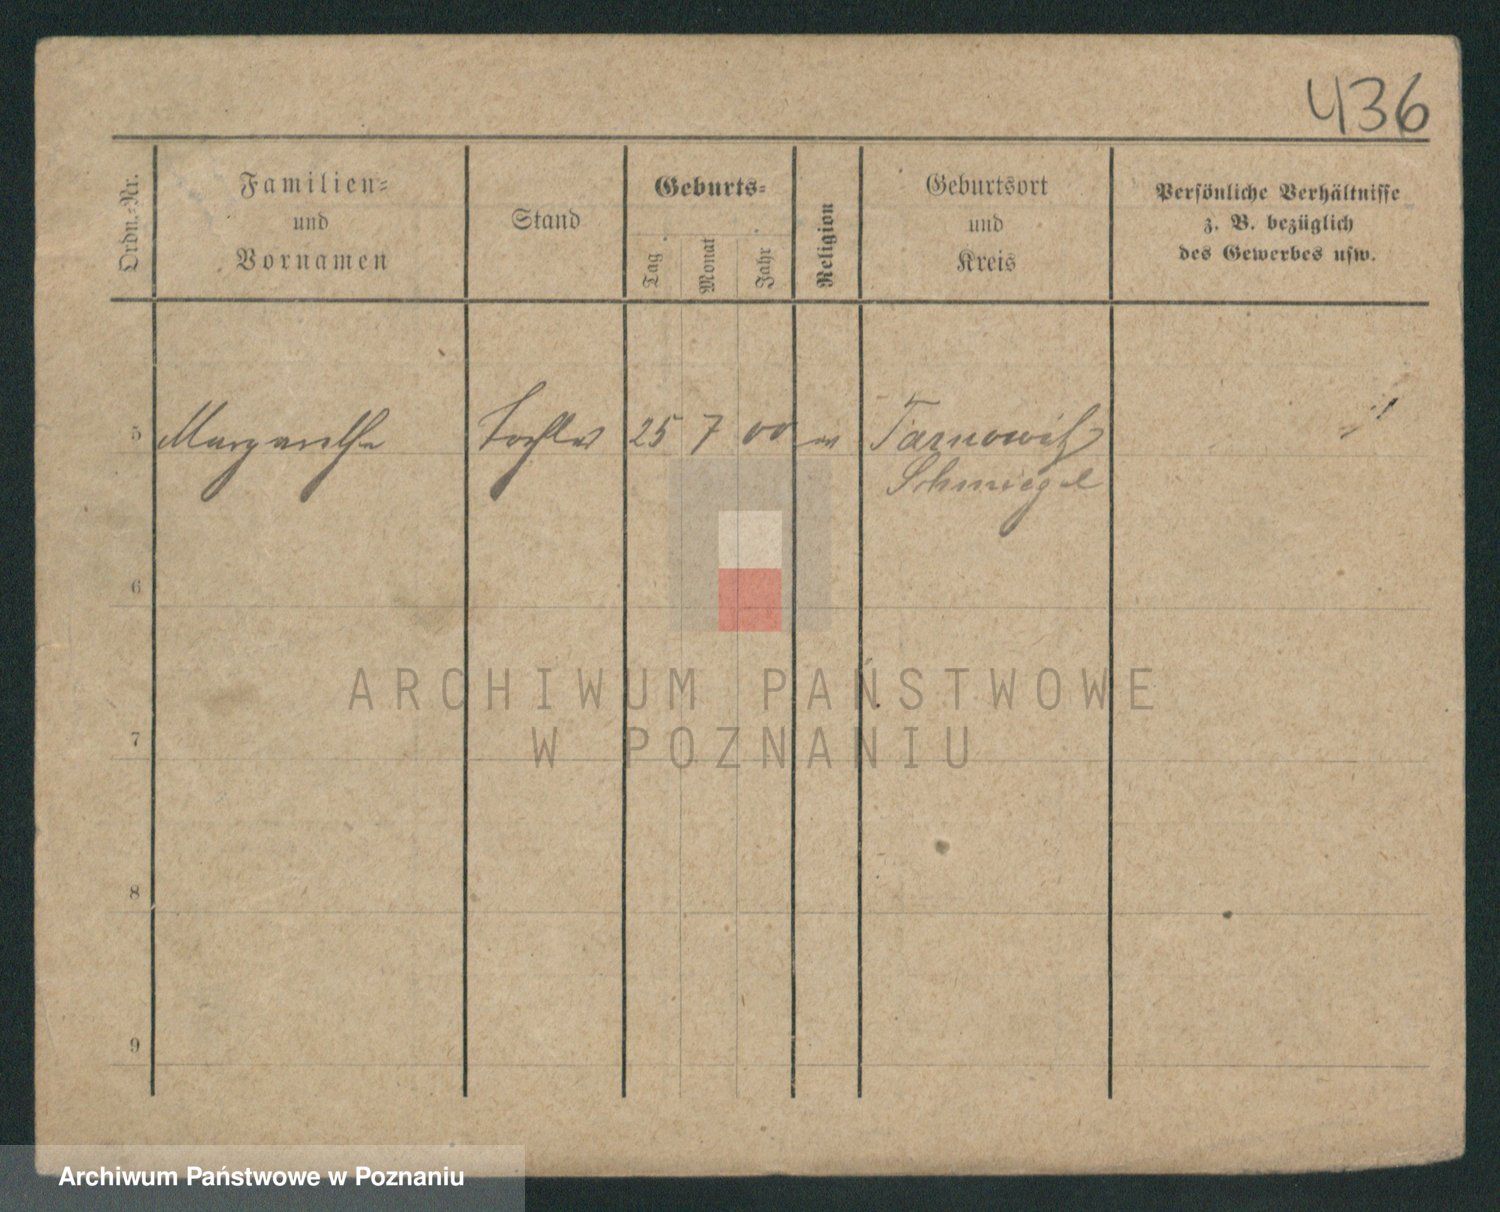 436
Ordn.-Nr.
Familien-
und
Vornamen
Stand
Geburts-
Tag
Monat
Jahr
Religion
Geburtsort
und
Kreis
Persönliche Verhältnisse
z. B. bezüglich
des Gewerbes usw.
5 Margarethe Tochter 25 7 00 Tarnowitz
Schmiegel
6
ARCHIWUM PAŃSTWOWE
W POZNANIU
7
8
9
Archiwum Państwowe w Poznaniu